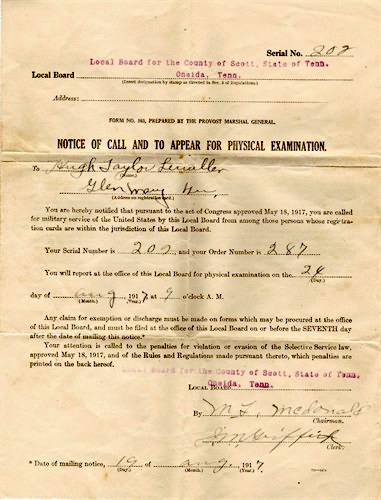 Serial No. 202
Local Board for the County of Scott, State of Tenn.
Local Board Oneida, Tenn.
(Insert designation by stamp as directed in Sec. 2 of Regulations.)
Address:
FORM NO. 103, PREPARED BY THE PROVOST MARSHAL GENERAL.
NOTICE OF CALL AND TO APPEAR FOR PHYSICAL EXAMINATION.
To Hugh Taylor
(Name.)
Glenmary
(Address on registration card.)
You are hereby notified that pursuant to the act of Congress approved May 18, 1917, you are called
for military service of the United States by this Local Board from among those persons whose registra-
tion cards are within the jurisdiction of this Local Board.
Your Serial Number is 202, and your Order Number is 287
You will report at the office of this Local Board for physical examination on the 24
(Day.)
day of Aug, 1917 at 9 o'clock A. M.
(Month.) (Year.)
Any claim for exemption or discharge must be made on forms which may be procured at the
office of this Local Board, and must be filed at the office of this Local Board on or before the SEVENTH day
after the date of mailing this notice.*
Your attention is called to the penalties for violation or evasion of the Selective Service law,
approved May 18, 1917, and of the Rules and Regulations made pursuant thereto, which penalties are
printed on the back hereof.
Local Board for the County of Scott, State of Tenn.
Oneida, Tenn.
Local Board
By M. L. McDonald
Chairman.
Griffith
Clerk.
* Date of mailing notice, 19 of Aug, 1917.
(Day.) (Month.)